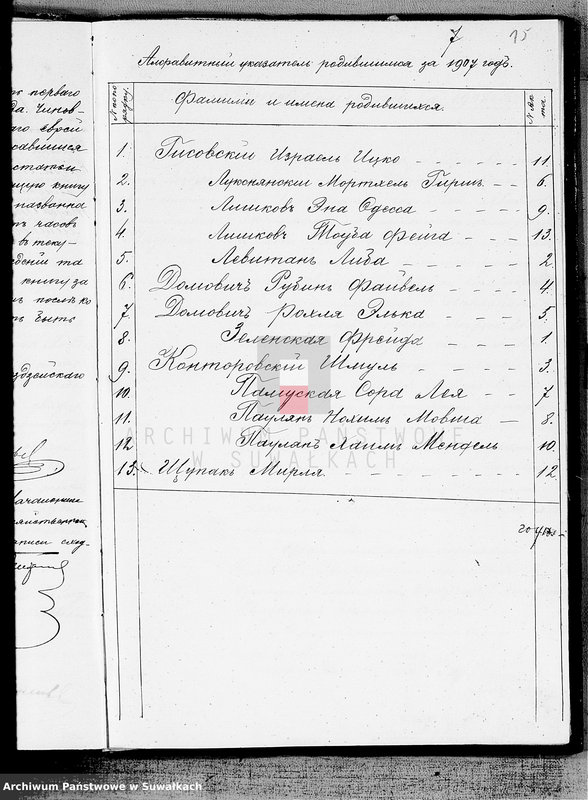 7
15
Алфавитный указатель родившимся за 1907 годъ.
Фамиліи и имена родившихся.
1. Гисовскій Израель Ицко 11
2. Луконянскій Мортхель Гиршъ 6.
3. Лишковъ Эна Одесса 9.
4. Лишковъ Тоуба Фейга 13.
5. Левитанъ Либа 2
6. Домовичъ Рубинъ Файвель 4.
7. Домовичъ Рохля Элька 5.
8. Зеленская Фрейда 1.
9. Конторовскій Шмуль 3.
10. Памуская Сора Лея 7
11. Паулянъ Нохимъ Мовша 8.
12 Пауланъ Хаимъ Мендель 10.
13. Щупакъ Мирля 12
перваго
еврей
книгу
названна
часовъ
въ теку-
книгу за
ARCHIWUM PAŃSTWOWE
W SUWAŁKACH
Archiwum Państwowe w Suwałkach